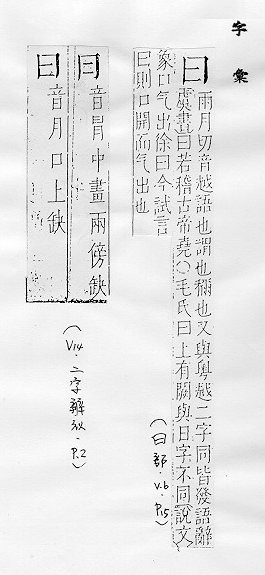 字彙
曰
雨月切音越語也謂也稱也又與粵越二字同皆發語辭
虞書曰若稽古帝堯○毛氏曰上有闕與日字不同說文
象口气出徐曰今試言
曰則口開而气出也
(曰部.V.6 P.15)
冃 音冐中畫兩傍缺
曰 音月口上缺
(V14.二字辨似.P.2)